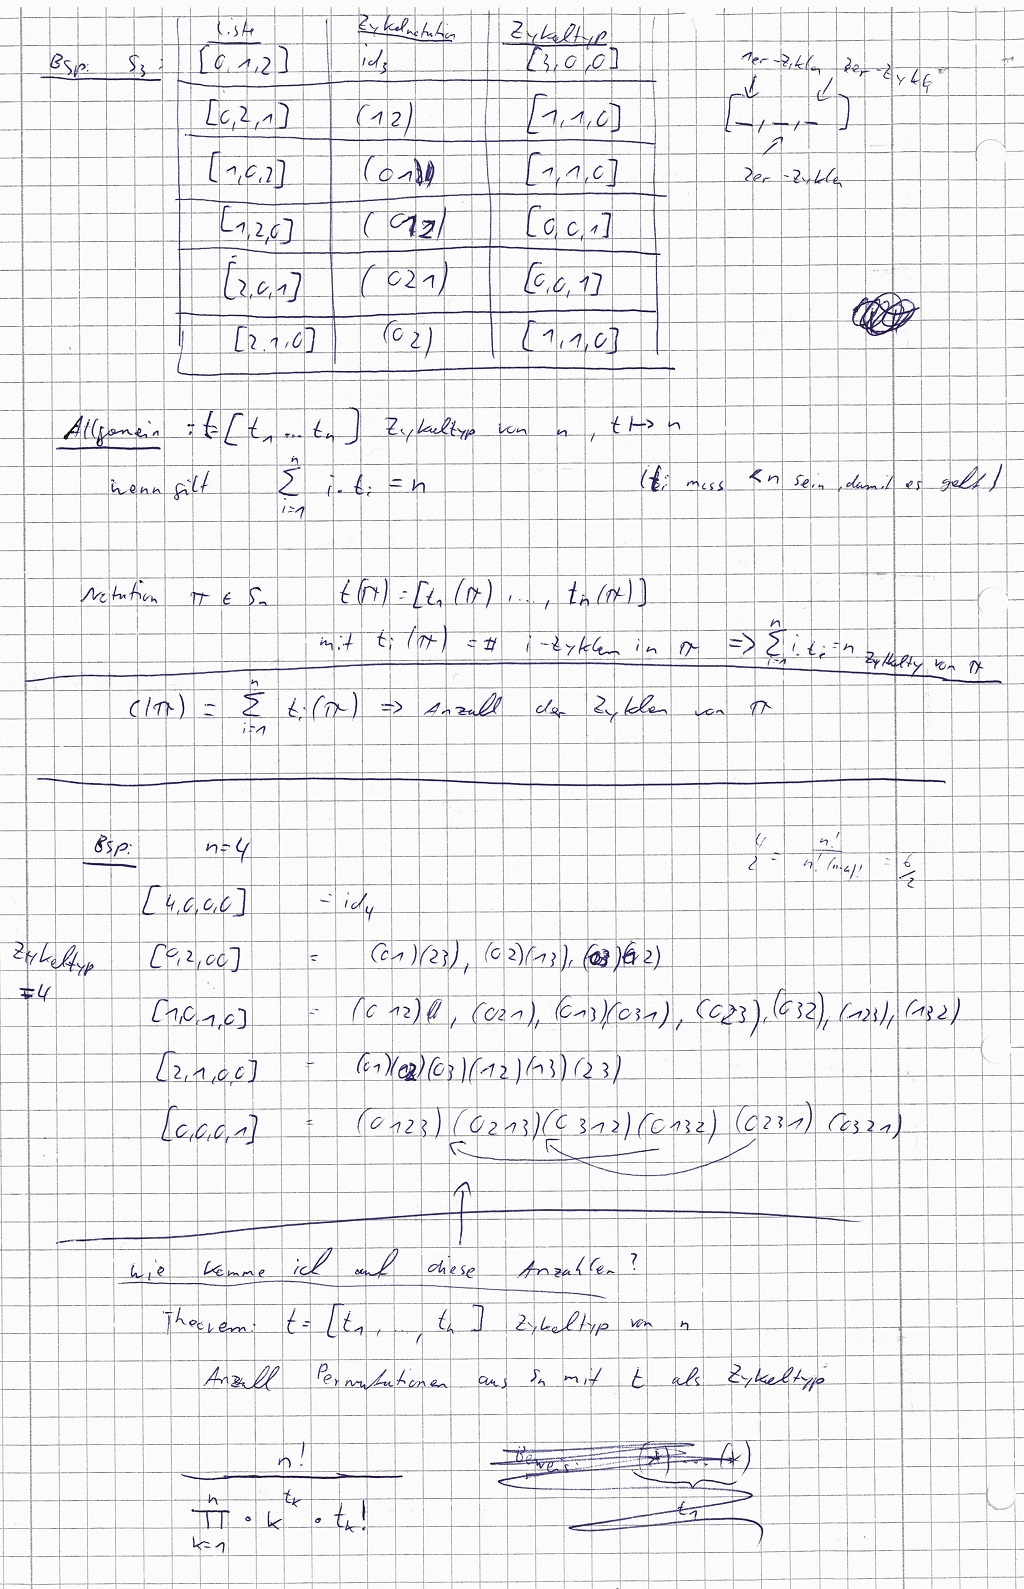 Liste Zykelnotation Zykeltyp
Bsp: S₃: [0,1,2] id₃ [3,0,0]
1er-Zykln 3er-Zykln
[0,2,1] (12) [1,1,0]
[_,_,_]
[1,0,2] (01) [1,1,0]
2er-Zykln
[1,2,0] (012) [0,0,1]
[2,0,1] (021) [0,0,1]
[2,1,0] (02) [1,1,0]
Allgemein: t=[t₁...tₙ] Zykeltyp von n, t ↦ n
wenn gilt ∑ᵢ₌₁ⁿ i·tᵢ = n (tᵢ muss <n sein, damit es geht)
Notation π ∈ Sₙ t(π)=[t₁(π)..., tₙ(π)]
mit tᵢ(π) = # i-Zyklen in π => ∑ᵢ₌₁ⁿ i·tᵢ=n Zykelty von π
c(π) = ∑ᵢ₌₁ⁿ tᵢ(π) => Anzahl der Zyklen von π
Bsp: n=4
4/2 = n!/n!·(n-4)! = 6/2
[4,0,0,0] = id₄
Zykeltyp [0,2,00] = (01)(23), (02)(13), (03)(12)
=4
[1,0,1,0] = (012), (021), (013)(031), (023), (032), (123), (132)
[2,1,0,0] = (01)(02)(03)(12)(13)(23)
[0,0,0,1] = (0123)(0213)(0312)(0132)(0231)(0321)
Wie komme ich auf diese Anzahlen?
Theorem: t=[t₁,...,tₙ] Zykeltyp von n
Anzahl Permutationen aus Sₙ mit t als Zykeltyp
n! / ∏ₖ₌₁ⁿ · k^tₖ · tₖ!
Beweis: (*)...(*)
t₁